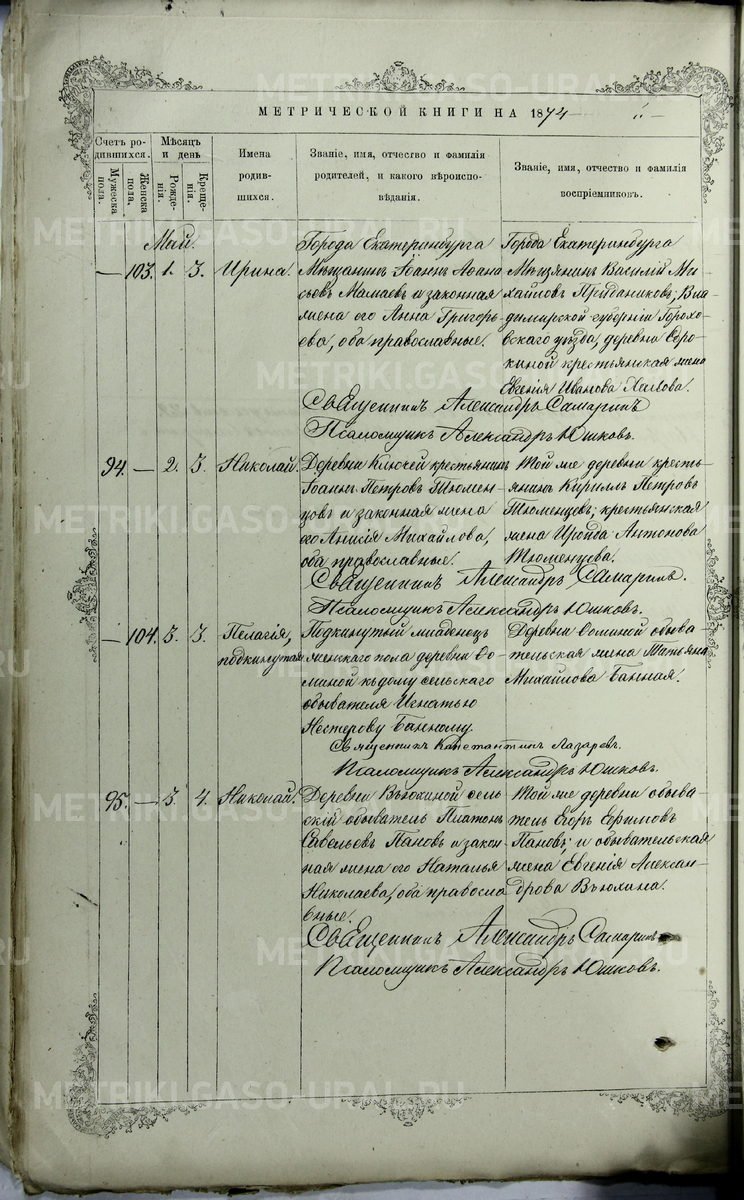 МЕТРИЧЕСКОЙ КНИГИ НА 1874
Счетъ ро-
дившихся.
Мужеска
пола.
Женска
пола.
Мѣсяцъ
и день
Рожде-
нія.
Креще-
нія.
Имена
родив-
шихся.
Званіе, имя, отчество и фамилія
родителей, и какого вѣроиспо-
вѣданія.
Званіе, имя, отчество и фамилія
воспріемниковъ.
Май.
— 103. 1. 3. Ирина.
Города Екатеринбурга
Мѣщанинъ Іоаннъ Аѳана
сьевъ Мамаевъ и законная
жена его Анна Григорь-
ева, оба православные.
Города Екатеринбурга
Мѣщанинъ Василій Ми-
хайловъ Приданиковъ; Вла-
димирской губерніи Горохо-
вскаго уѣзда, деревни
крестьянская жена
Евгенія Иванова
Священникъ Александръ Самаринъ
Псаломщикъ Александръ Юшковъ.
94. — 2. 3. Николай.
Деревни Ключей крестьянинъ
Іоаннъ Петровъ Тюмен-
цовъ и законная жена
его Анисія Михайлова,
оба православные.
Той же деревни кресть-
янинъ Кириллъ Петровъ
Тюменцевъ; крестьянская
жена Ироида Антонова
Тюменцева.
Священникъ Александръ Самаринъ.
Псаломщикъ Александръ Юшковъ.
— 104. 3. 3. Пелагія,
подкинутая
Подкинутый младенецъ
женскаго пола деревни Ѳо-
миной къ дому сельскаго
обывателя Игнатью
Нестерову Банному.
Деревни Ѳоминой обыва
тельская жена Татьяна
Михайлова Банная.
Священникъ Константинъ Лазаревъ.
Псаломщикъ Александръ Юшковъ.
95. — 3. 4. Николай.
Деревни Вьюхиной сель
скій обыватель Платонъ
Савельевъ Пановъ и закон
ная жена его Наталья
Николаева, оба правосла
вные.
Той же деревни обыва-
тель Егоръ Ефимовъ
Пановъ; и обывательская
жена Евгенія Алексан-
дрова Вьюхина.
Священникъ Александръ Самаринъ
Псаломщикъ Александръ Юшковъ.
METRIKI.GASO-URAL.RU